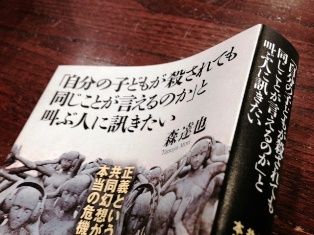 「自分の子どもが殺されても
同じことが言えるのか」と
叫ぶ人に訊きたい
森達也
Tatsuya Mori
正義という
共同幻想が
本当の危機
「自分の子どもが殺されても
同じことが言えるのか」と
叫ぶ人に訊きたい